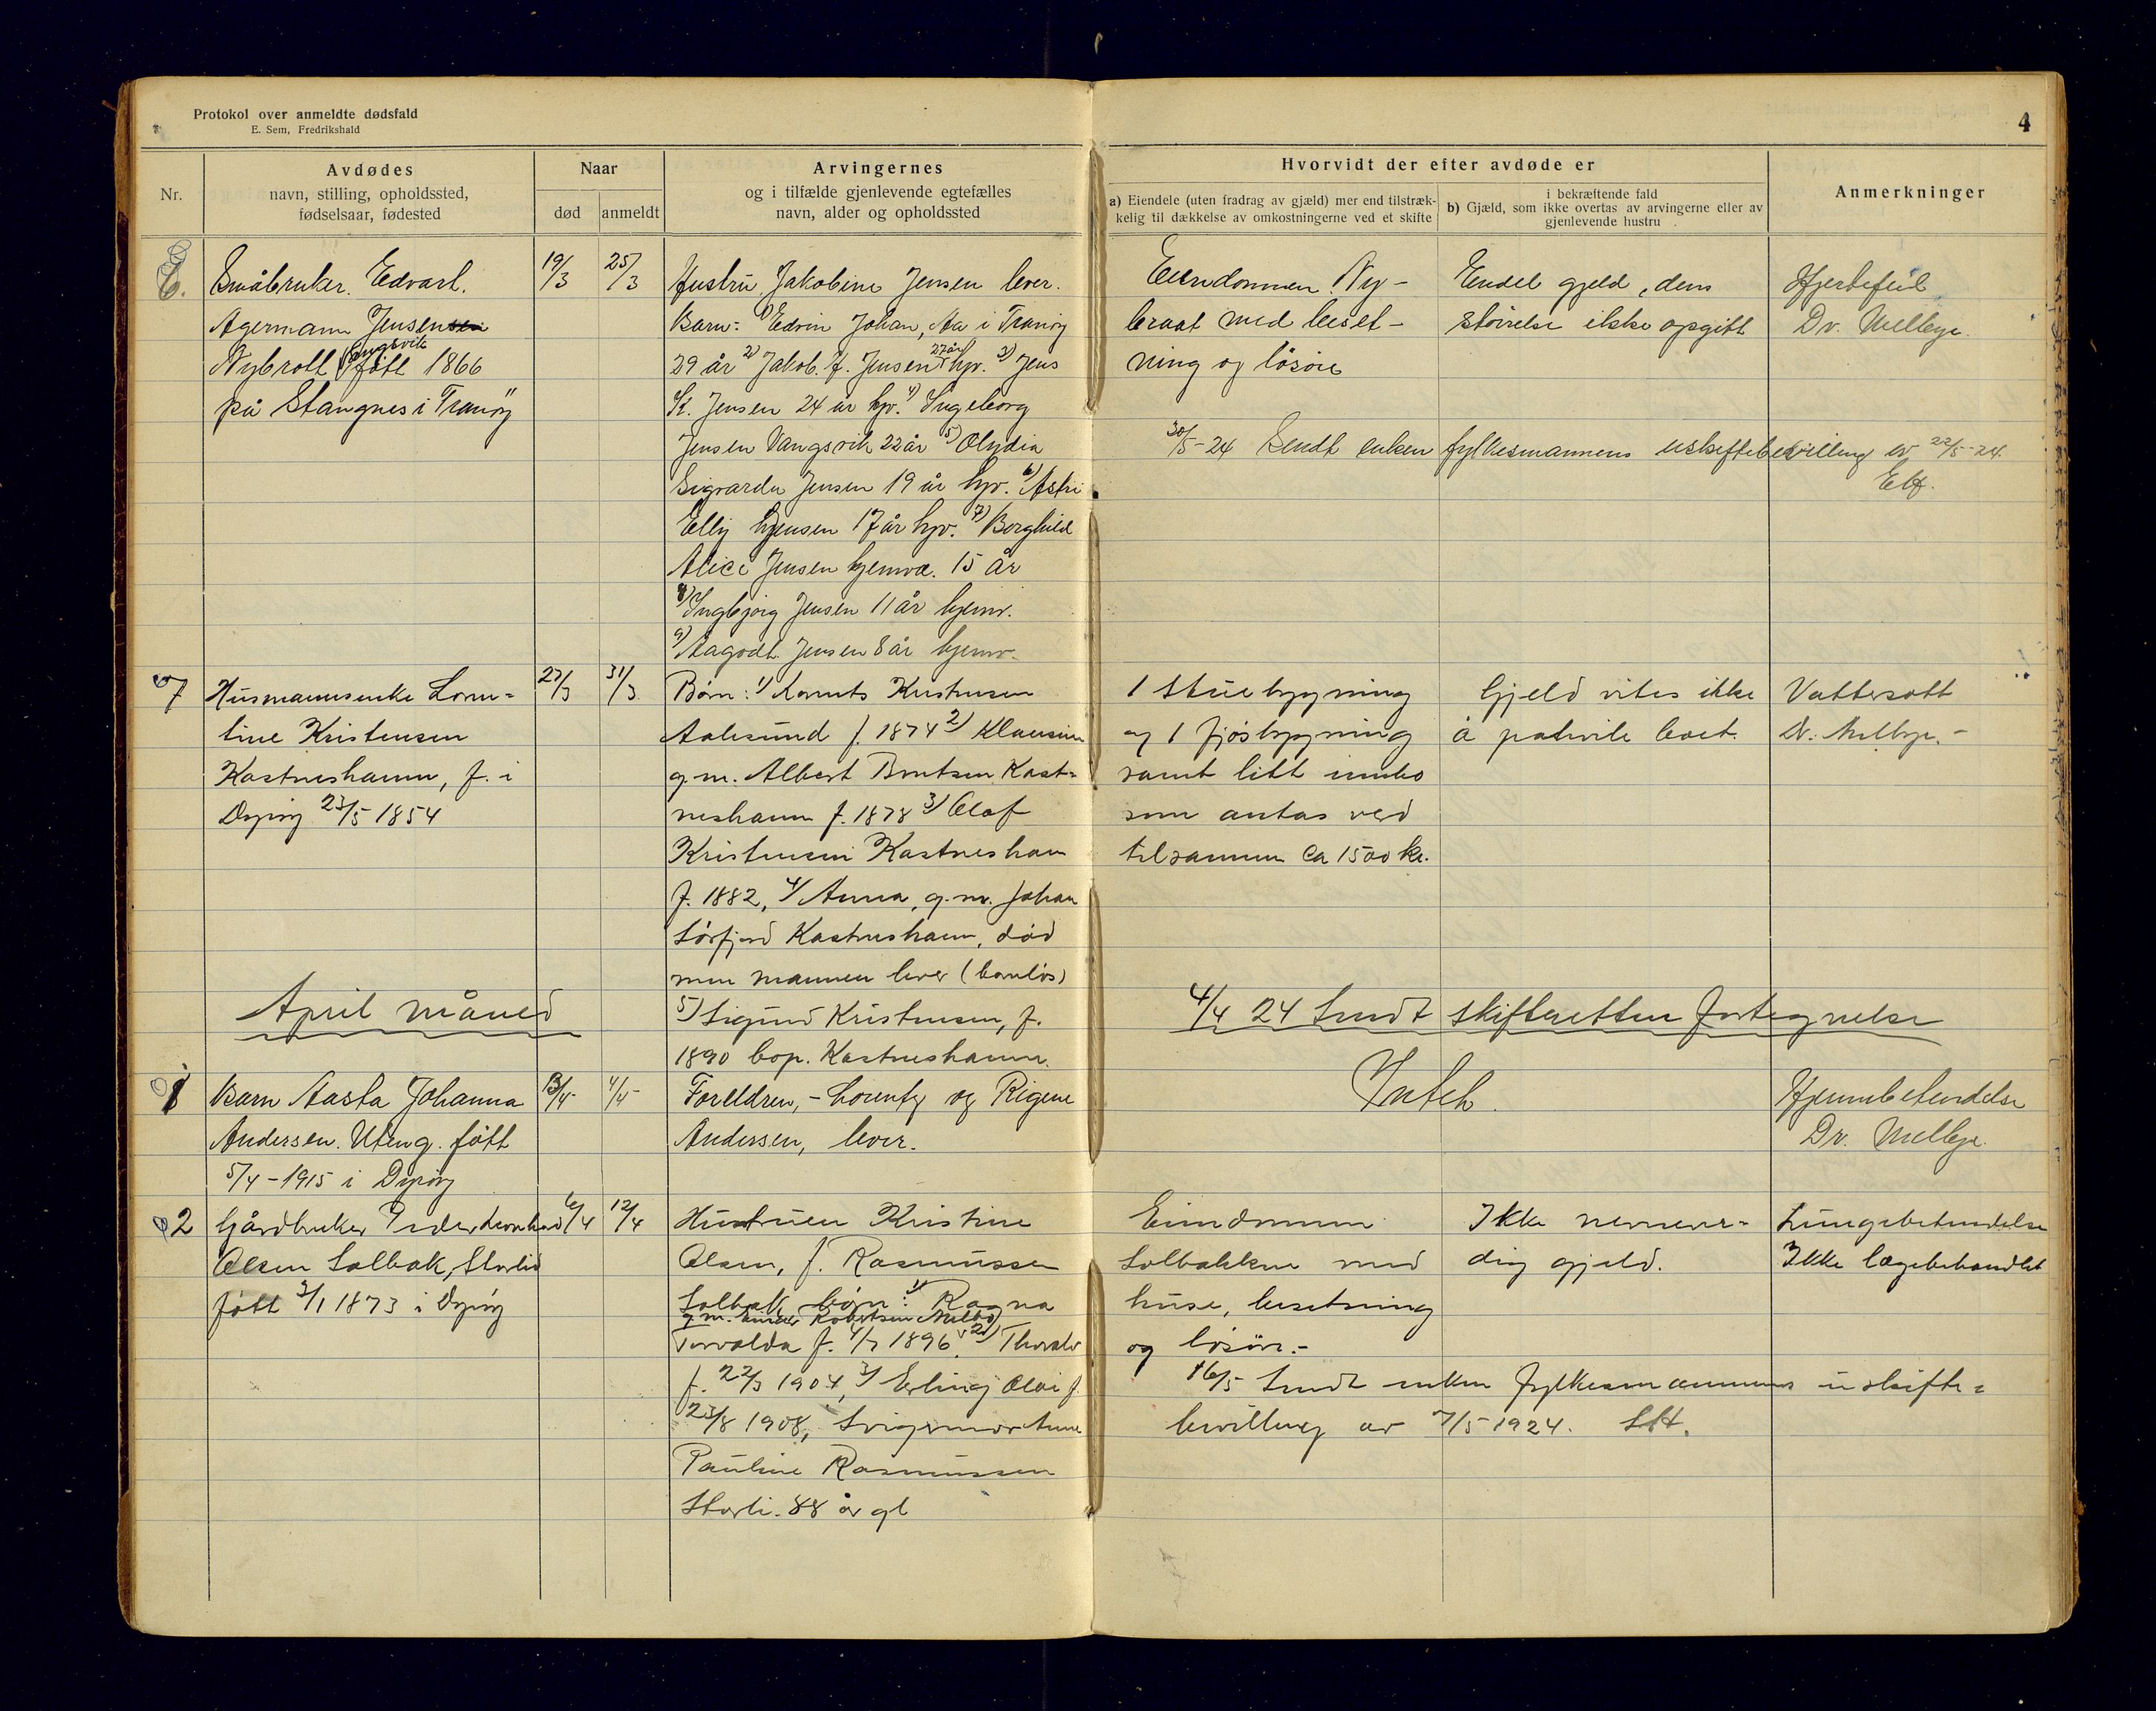 Protokol over anmeldte dødsfald
E. Sem, Fredrikshald
4
Nr.
Avdødes
navn, stilling, opholdssted,
fødselsaar, fødested
Naar
død
anmeldt
Arvingernes
og i tilfælde gjenlevende egtefælles
navn, alder og opholdssted
Hvorvidt der efter avdøde er
a) Eiendele (uten fradrag av gjæld) mer end tilstræk-
kelig til dækkelse av omkostningerne ved et skifte
i bekræftende fald
b) Gjæld, som ikke overtas av arvingerne eller av
gjenlevende hustru
Anmerkninger
6.
Småbruker. Edvart.
Agermann Jensen
Nybrott Vangsvik født 1866
på Stangnes i Tranöy
19/3
25/3
Hustru Jakobine Jensen lever.
Barn: 1) Edvin Johan, Aa i Tranöy
29 år 2) Jakob. H. Jensen 27 år hjv. 3) Jens
K. Jensen 24 år hjv. 4) Ingeborg
Jensen Vangsvik 22 år 5) Olydia
Sigvarda Jensen 19 år hjv. 6) Astri
Elly Jensen 17 år hjv. 7) Borghild
Alice Jensen hjemva. 15 år
8) Ingbjørg Jensen 11 år hjemv.
9) Aagodt Jensen 8 år hjemv.
Eiendommen Ny-
braat med beset-
ning og løsøre
Endel gjeld, dens
størrelse ikke opgitt
Hjertefeil
Dr. Melbye.
30/5-24 Sendt enken fylkesmannens uskiftebevilling av 22/5-24.
7
Husmannsenke Loren-
tine Kristensen
Kastneshamn, f. i
Dyröy 23/5 1854
27/3
31/3
Børn: 1) Kornts Kristensen
Aalesund f. 1874 2) Klausine
g.m. Albert Berntsen Kast-
neshamn f. 1878 3) Olaf
Kristensen Kastneshamn
f. 1882, 4) Anna, g.m. Johan
Sörfjord Kastneshamn, död
men mannen lever (barnlös)
5) Sigurd Kristensen, f.
1890 bop. Kastneshamn.
1 stuebygning
og 1 fjösbygning
samt litt innbo
som antas verd
tilsammen ca 1500 kr.
Gjeld vites ikke
å påhvile boet.
Vattersott
Dr. Melbye.-
April måned
4/4 24 Sendt skifteretten fortegnelse
1
Barn Aasta Johanna
Andersen. Uteng. født
5/4-1915 i Dyröy
4/4
Foreldren,- Lorentz og Rigene
Andersen, lever.
Intet.
Hjernebetendelse
Dr. Melbye.
2
Gårdbruker Peder Leonhard
Olsen Solbak, Storlid
født 3/1 1873 i Dyröy
6/4
12/4
Hustruen Kristine
Olsen, f. Rasmussen
Solbak børn: 1) Ragna
g.m. Einar Robertsen Melbo
Torvalda f. 4/7 1896, 2) Thoralv
f. 22/3 1904, 3) Erling Olai f.
23/8 1908, Svigermor Anne
Pauline Rasmussen
Storli. 88 år gl
Eiendommen
Solbakken med
huse, besetning
og lösöre.-
Ikke nevnever-
dig gjeld.
Lungebetendelse
Ikke lægebehandlet
16/5 Sendt enken fylkesmannens uskifte-
bevilling av 7/5 1924.